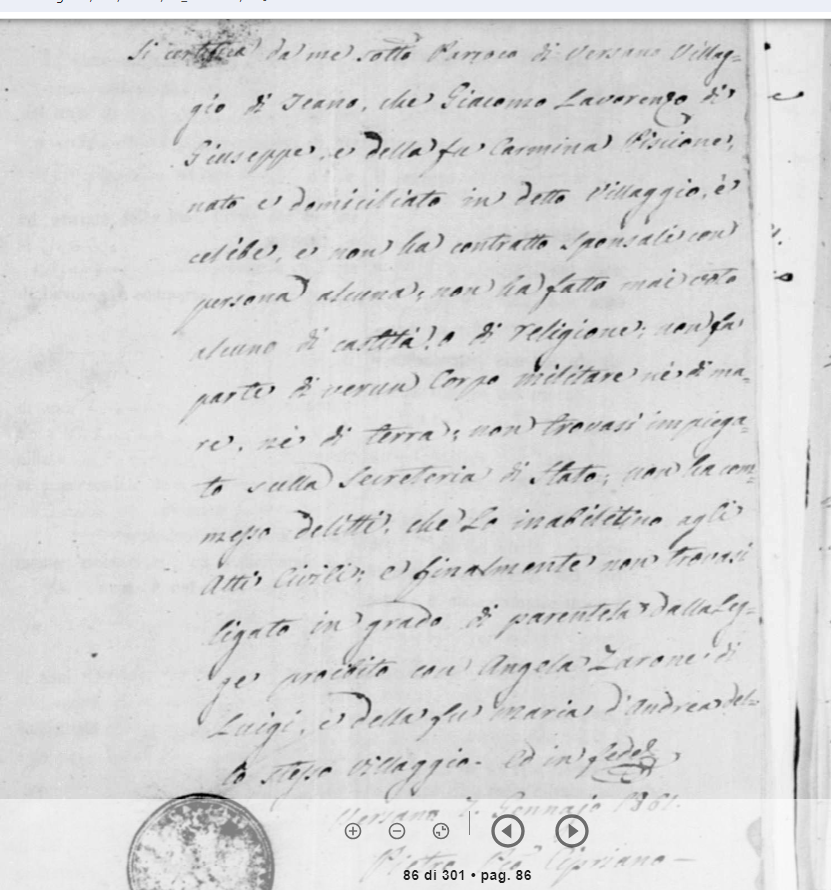 Si certifica da me sotto Parroco di Versano Villag=
gio di Teano, che Giacomo Lavorenzo di
Giuseppe, e della fu Carmina Piscione,
nato e domiciliato in detto Villaggio, è
celibe, e non ha contratto sponsali con
persona alcuna; non ha fatto mai voto
alcuno di castità, o di religione; non fa
parte di verun Corpo militare nè di ma=
re, nè di terra; non trovasi impiega=
to sulla Secreteria di Stato; non ha com=
messo delitti, che Lo inabilitino agli
Atti Civili; e finalmente non trovasi
ligato in grado di parentela dalla Leg=
ge proibito con Angela Zarone di
Luigi, e della fu Maria d'Andrea del=
lo stesso Villaggio. Ed in fede
Versano Gennaio 1861.
Pietro Cipriano
86 di 301 • pag. 86